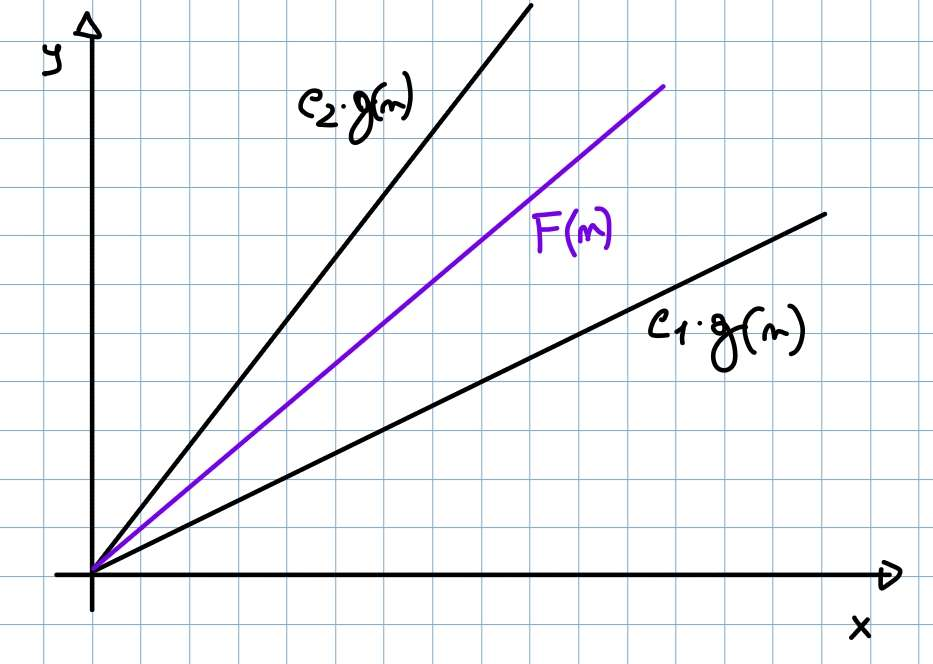 y
c₂·g(n)
F(n)
c₁·g(n)
x